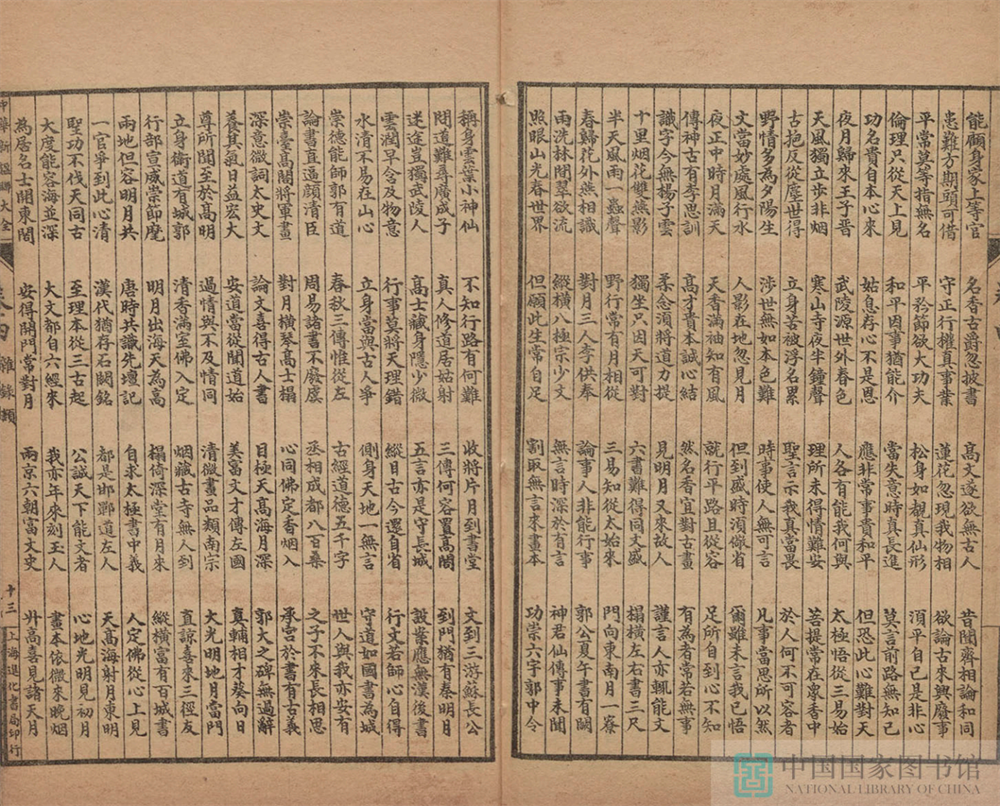 能顧身家上等官　名香古爵忽披書　高文遂欲無古人　昔聞齊相論和同
患難方期頭可借　守正行權真事業　蓮花忽現我物相　欲論古來興廢事
平常莫等措無名　平矜節欲大功夫　松身如覯真仙形　須平自己是非心
倫理只從天上見　和平因事猶能介　當失意時真當忍　莫言前路無知己
功名貴自本心來　姑息存心不是恩　應非常事貴和平　但恐此心難對天
夜月歸來王子晉　武陵源世外春色　人各有能我何與　太極悟從三易始
天風獨立步非烟　寒山寺夜半鐘聲　理所未得情難安　菩提常在眾香中
古抱反從塵世得　立身苦被浮名累　聖言示我真當畏　於人何不可容者
野情多為夕陽生　涉世無如本色難　時事使人無可言　凡事當思所以然
文當妙處風行水　人影在地忽見月　但到盛時須儉省　爾雖未言我已悟
夜正中時月滿天　天香滿袖知有風　就行平路且從容　足所自到心不知
傳神古有李思訓　高才貴本誠心結　然名香宜對古畫　有為者常若無事
識字今無揚子雲　柔念須將道力提　見明月又來故人　謹言人亦輒能文
十里烟花雙燕影　獨坐只因天可對　六書難得同文盛　榻橫左右書三尺
半天風雨一蟲聲　野行常有月相從　三易知從太始來　門向東南月一寮
春歸花外燕相識　對月三人李供奉　論事人非能行事　郭公夏午書有闕
雨洗林間翠欲流　縱橫八極宗少文　無言時深於有言　神君仙傳事未聞
照眼山光春世界　但願此生常自足　割取無言來畫本　功崇六宇郭中令
稱身雲葉小神仙　不知行路有何難　收將片月到書堂　文到三游蘇長公
問道難尋廣成子　真人修道居姑射　三傳何容置高閣　到門猶有秦明月
迷途豈獨武陵人　高士藏身隱少微　五言亦是守長城　設業應無漢後書
雲潤早念及物意　行事莫將天理錯　縱目古今還自省　行文若師心自得
水清不易在山心　立身當與古人爭　側身天地一無言　守道如國書為城
崇德能師郭有道　春秋三傳惟從左　古經道德五千字　世人與我亦安有
論書直逼顏清臣　周易諸書不廢虞　丞相成都八百桑　之子不來長相思
崇臺高閣將軍畫　對月橫琴高士榻　心同佛定香烟入　承宮於書有古義
深意微詞太史文　論文喜得古人書　目極天高海月深　郭太之碑無過辭
養其氣日益宏大　安道當從聞道始　美富文才傳左國　真輔相才葵向日
尊所聞至於高明　過情與不及情同　清微畫品類南宗　大光明地月當門
立身衛道有城郭　清香滿室佛入定　烟藏古寺無人到　直諒喜來三徑友
行部宣威崇節麾　明月出海天為高　榻倚深堂有月來　縱橫富有百城書
兩地但容明月共　唐時共識先壇記　自求太極書中我　人定佛從心上見
一官爭到此心清　漢代猶存石闕銘　都是邯鄲道左人　天高海射月東明
聖功不伐天同古　至理本從三古起　公誠天下能文者　心地光明見初月
大度能容海並深　大文都自六經來　我亦年來刻玉人　畫本依微來晚烟
為居名士開東閣　安得閉門常對月　兩京六朝富文史　升高喜見諸天月
中華新楹聯大全　卷四　雜錄類　十三　上海進化書局印行
中国国家图书馆
NATIONAL LIBRARY OF CHINA